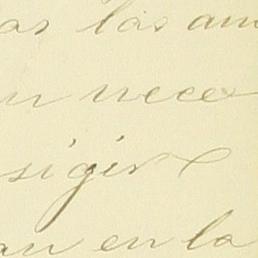 as las am
n nece
sigir
an en la